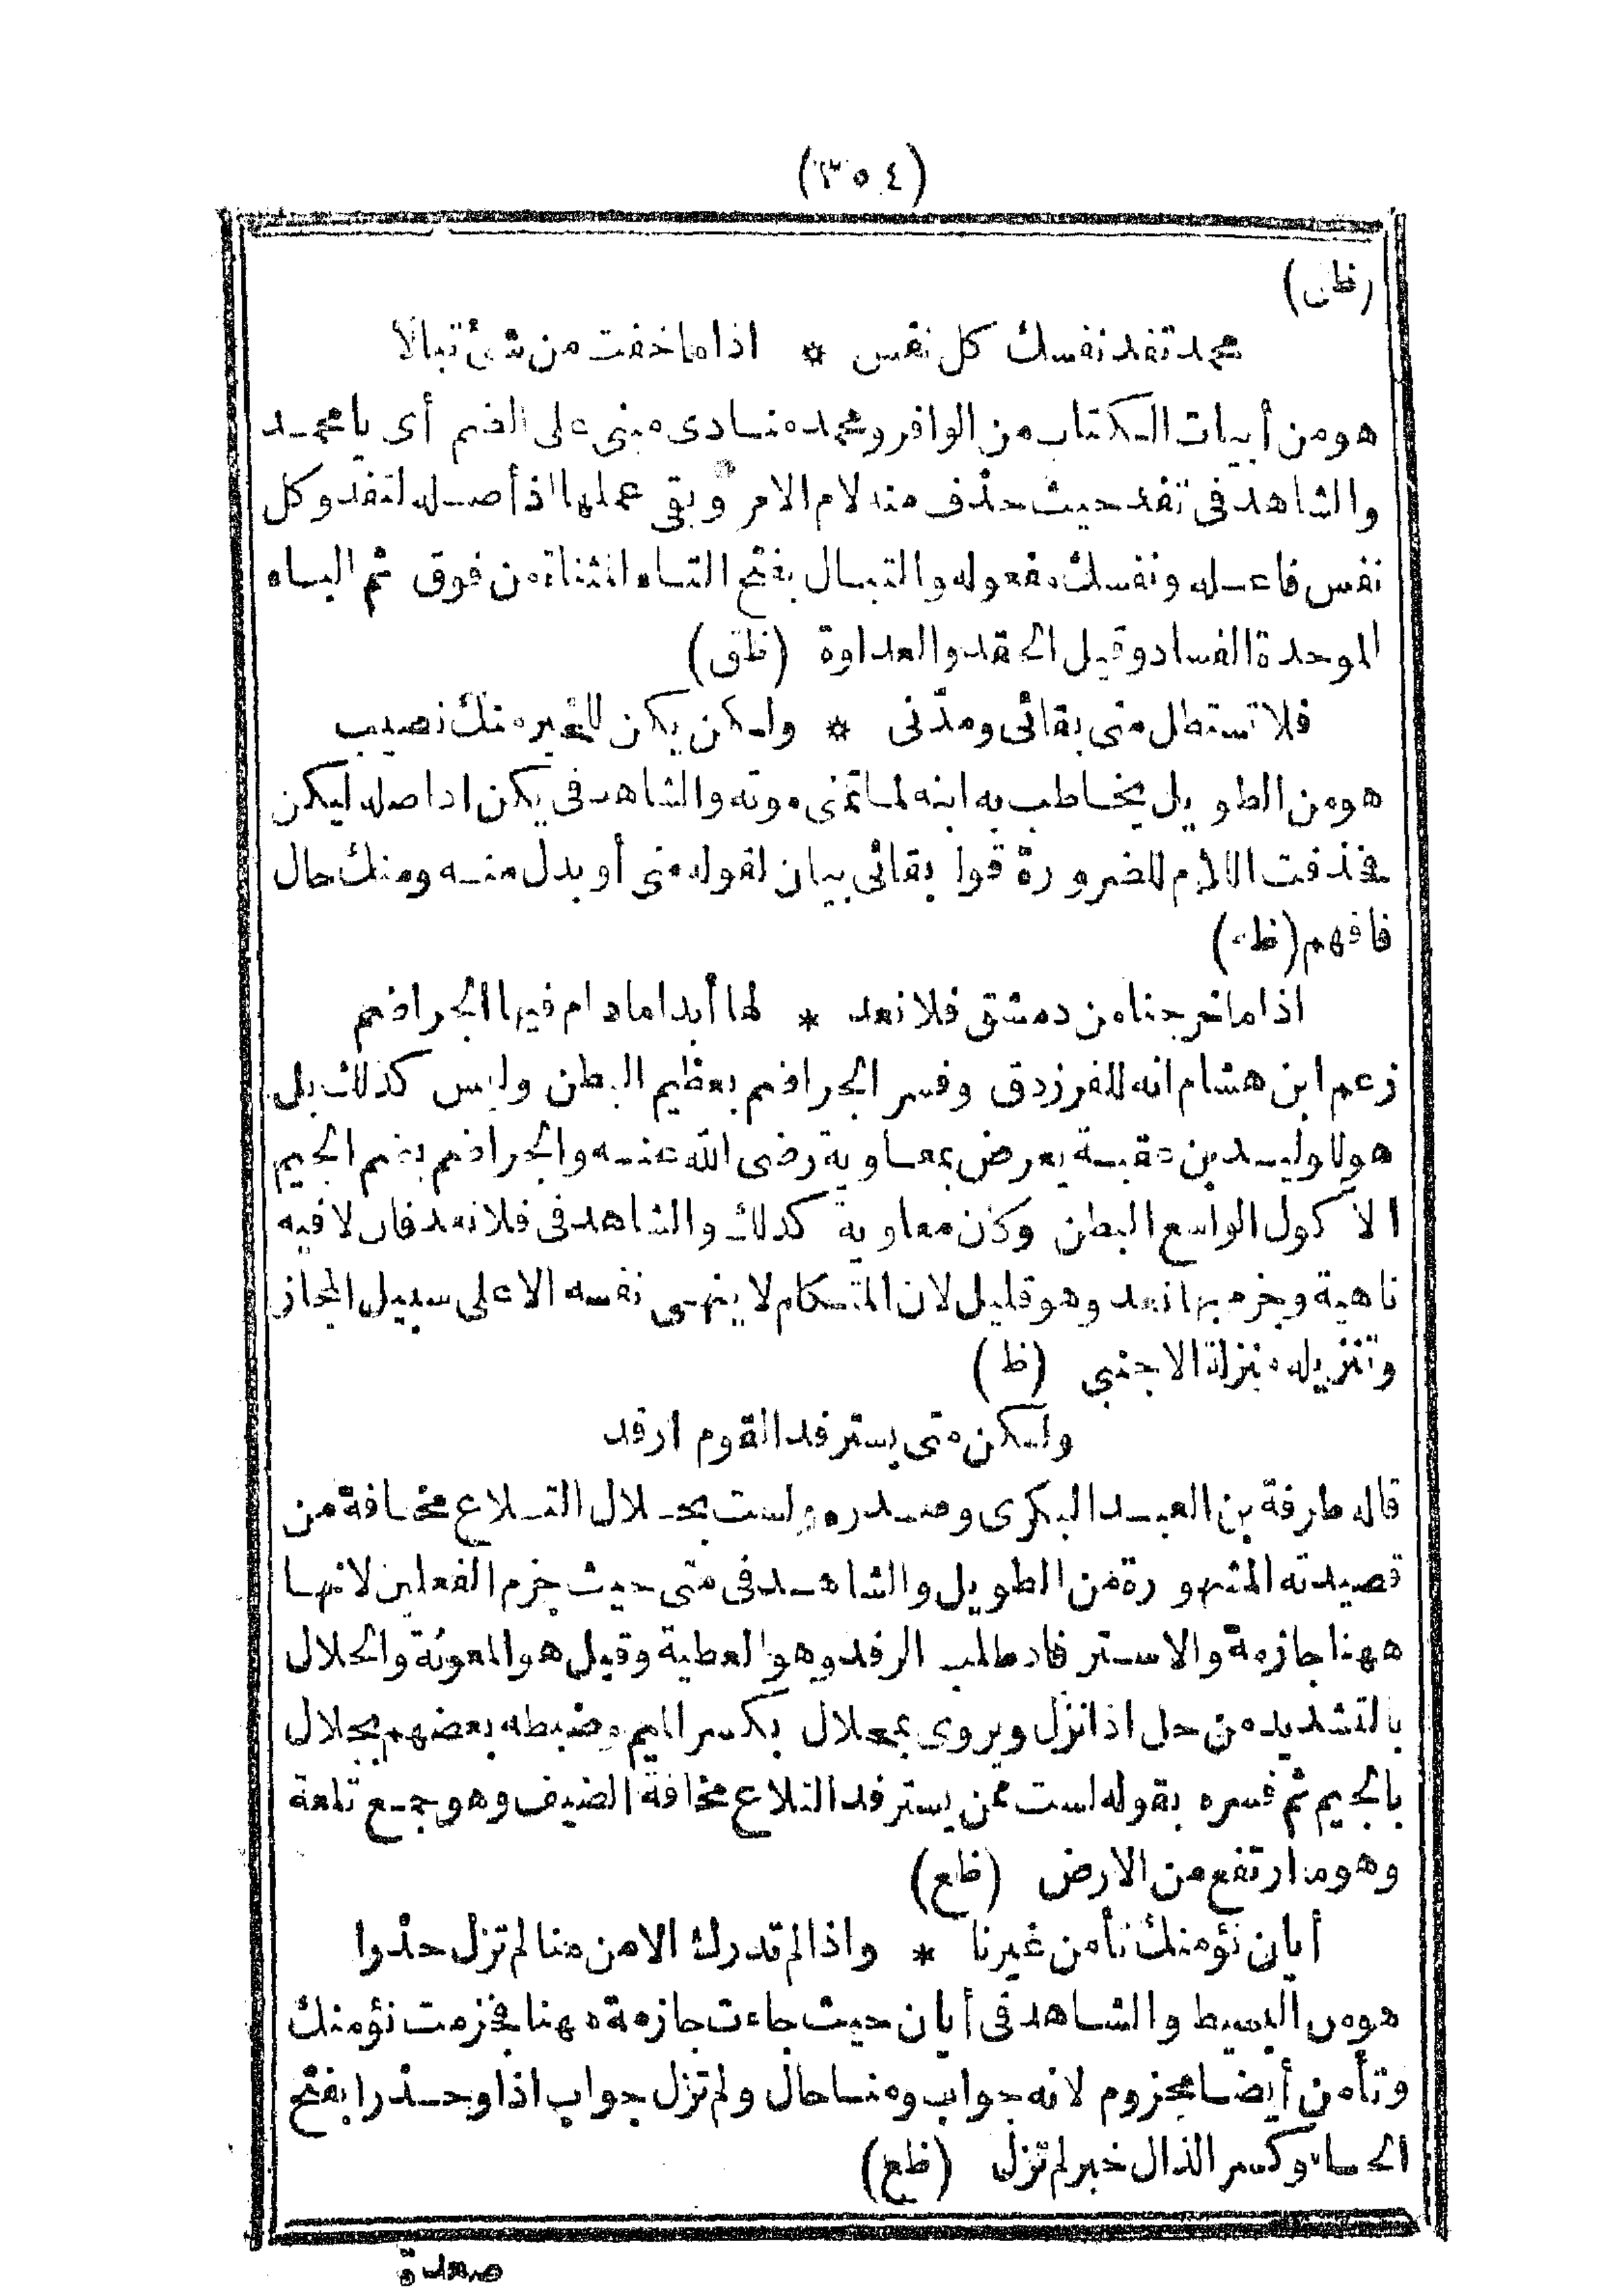 (٣٥٤)
(ظن)
محمد تفد نفسك كل نفس * اذا ما خفت من شئ تبالا
هو من أبيات الكتاب من الوافر ومحمد منادى مبنى على الضم أى يا محمد
والشاهد فى تفد حيث حذف منه لام الامر وبقى عملها اذ أصله لتفد وكل
نفس فاعله ونفسك مفعوله والتبال بفتح التاء المثناة من فوق ثم الباء
الموحدة الفساد وقيل الحقد والعداوة (ظق)
فلا تستطل منى بقائى ومدتى * ولكن يكن للخير منك نصيب
هو من الطويل يخاطب به ابنه لما تمنى موته والشاهد فى يكن اذ اصله ليكن
فحذفت اللام للضرورة قوله بقائى بيان لقوله منى أو بدل منه ومنك حال
فافهم (ظه)
اذا ما خرجنا من دمشق فلا نعد * لها أبدا ما دام فيها الجراضم
زعم ابن هشام انه للفرزدق وفسر الجراضم بعظيم البطن وليس كذلك بل
هو للوليد بن عقبة يعرض بمعاوية رضى الله عنه والجراضم بضم الجيم
الأكول الواسع البطن وكان معاوية كذلك والشاهد فى فلا نعد فان لا فيه
ناهية وجزم بها نعد وهو قليل لان المتكلم لا ينهى نفسه الا على سبيل المجاز
وتنزيله منزلة الاجنبى (ظ)
ولكن متى يسترفد القوم ارفد
قاله طرفة بن العبد البكرى وصدره ولست بحلال التلاع مخافة من
قصيدته المشهورة من الطويل والشاهد فى متى حيث جزم الفعلين لانها
ههنا جازمة والاسترفاد طلب الرفد وهو العطية وقيل هو المعونة والحلال
بالتشديد من حل اذا نزل ويروى بمحلال بكسر الميم وضبطه بعضهم بجلال
بالجيم ثم فسره بقوله لست ممن يسترفد التلاع مخافة الضيف وهو جمع تلعة
وهو ما ارتفع من الارض (ظع)
أيان نؤمنك تأمن غيرنا * واذا لم تدرك الامن منا لم تزل حذرا
هو من البسيط والشاهد فى أيان حيث جاءت جازمة ههنا فجزمت نؤمنك
وتأمن أيضا مجزوم لانه جواب ومنا حال ولم تزل جواب اذا وحذرا بفتح
الحاء وكسر الذال خبر لم تزل (ظع)
صعدة